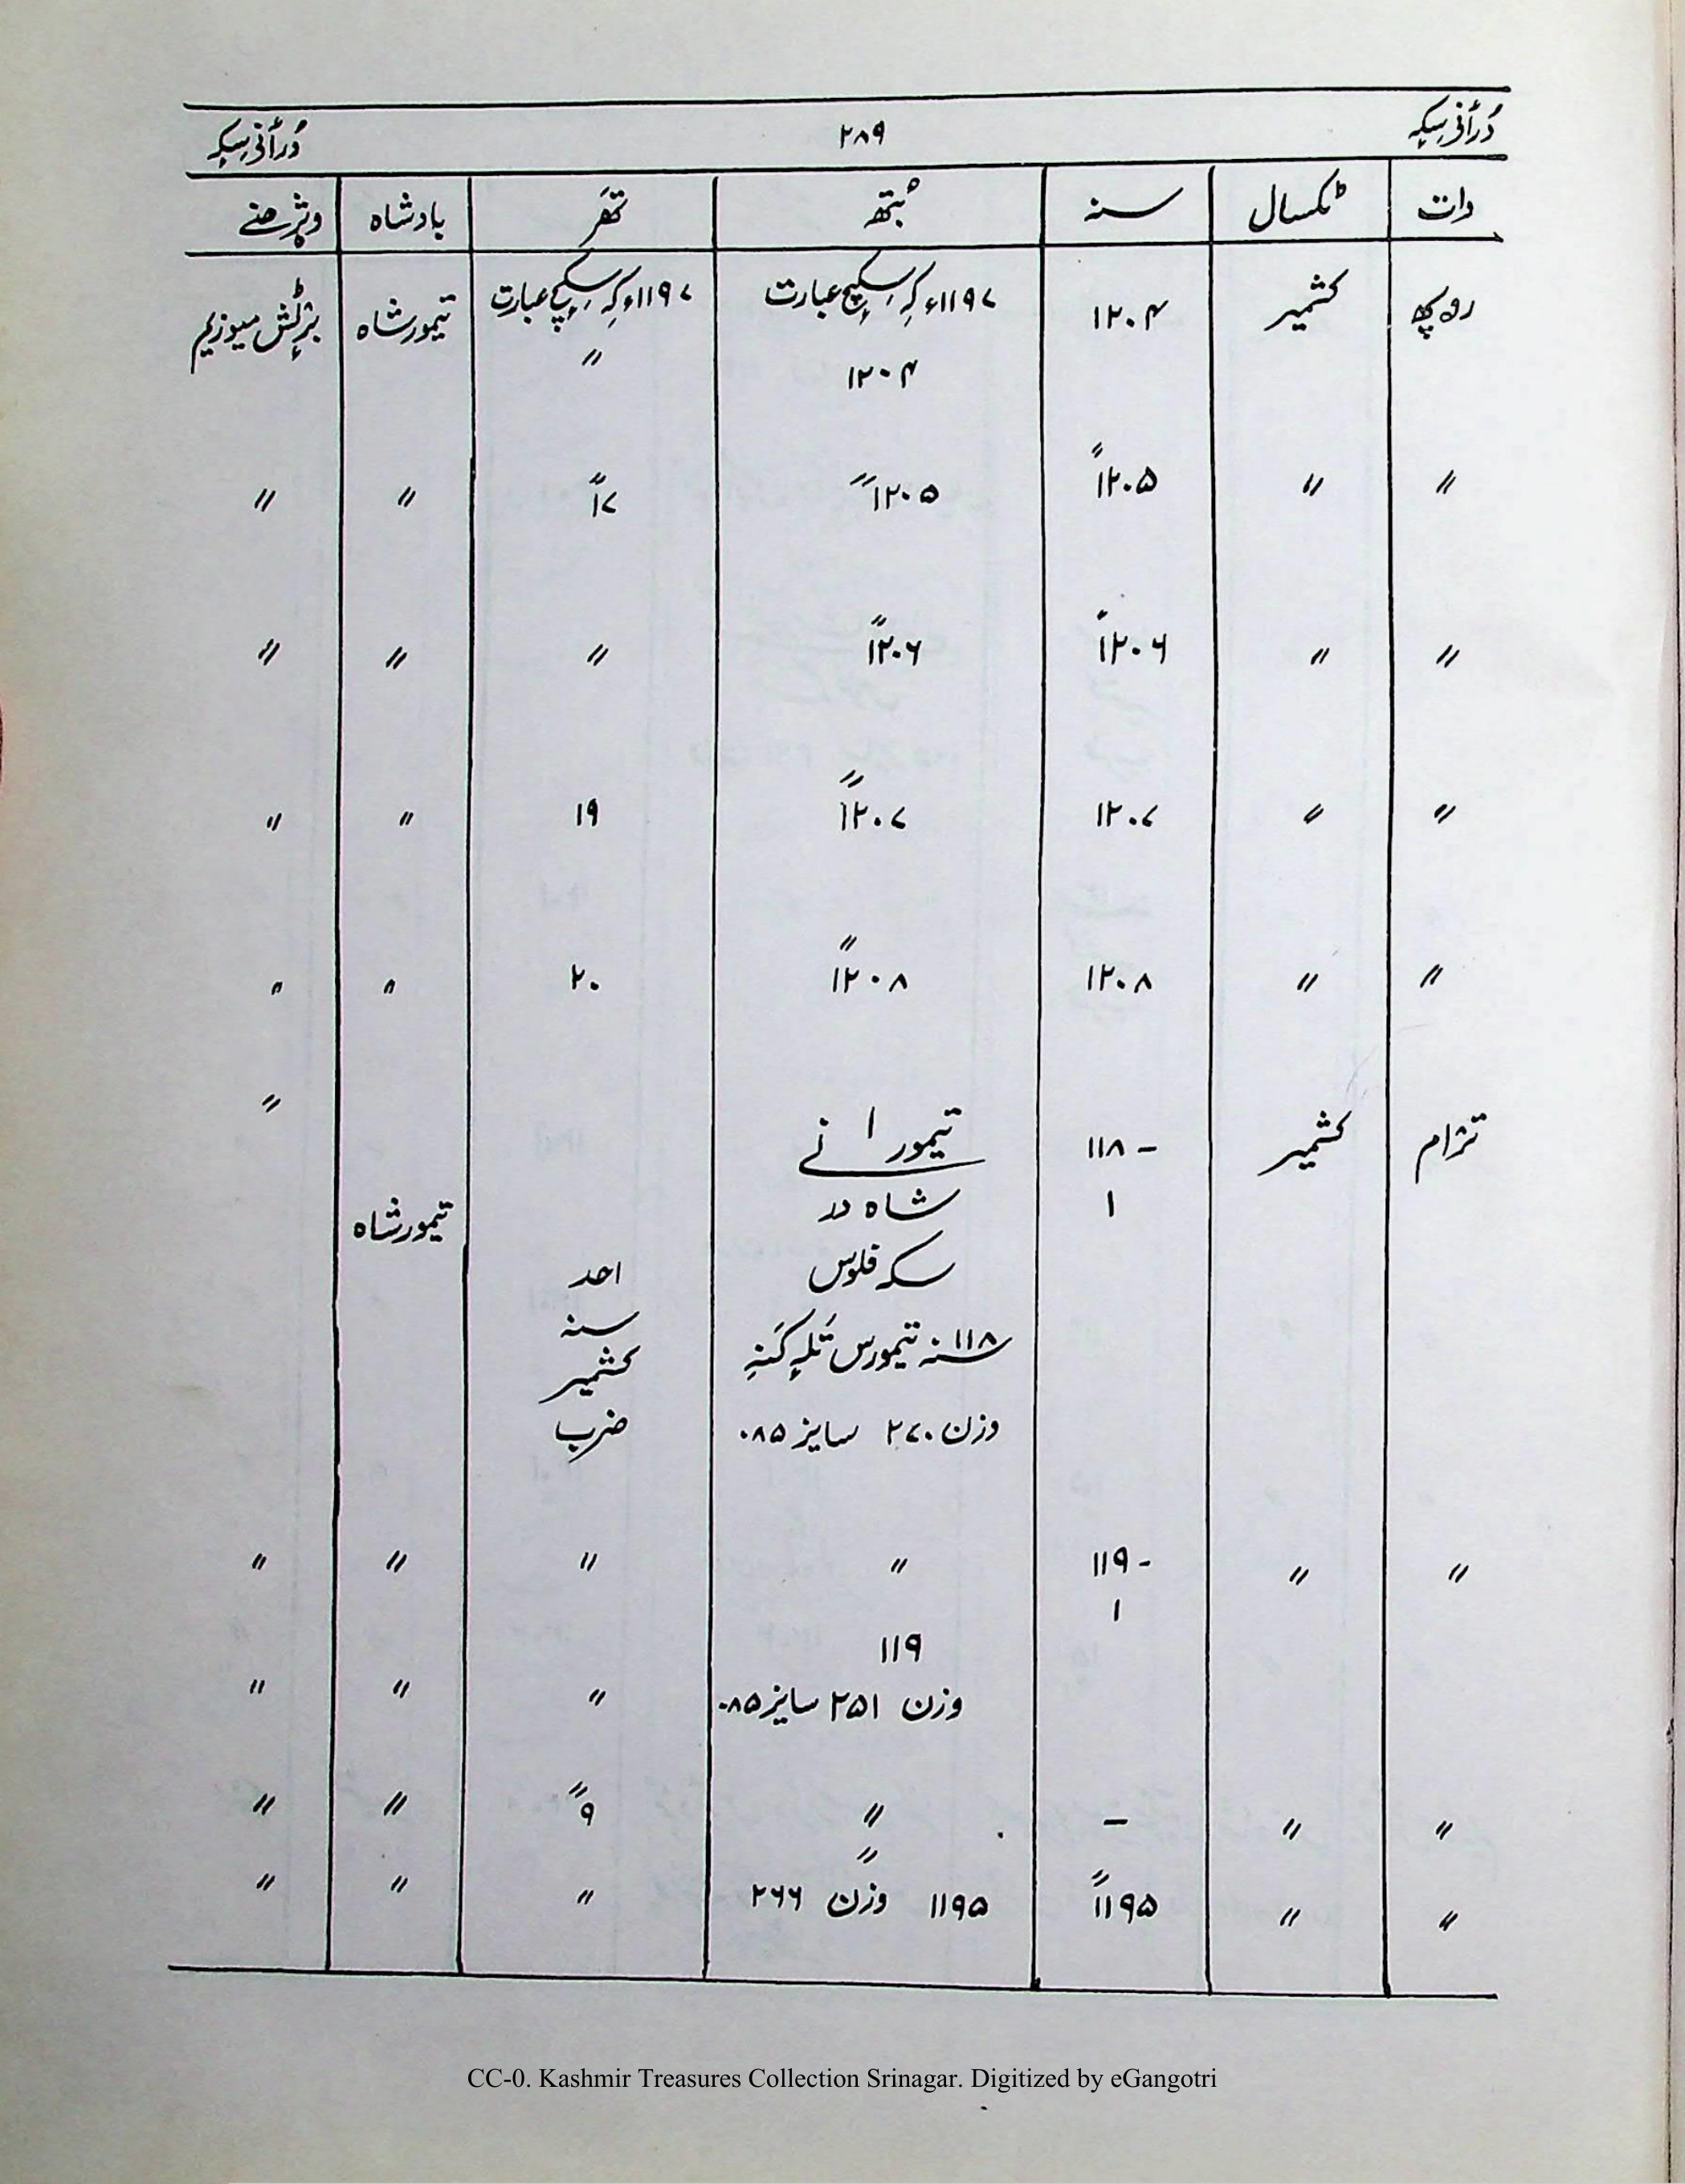 دُرأنی سِکہٕ ۲۸۹ دُرأنی سِکہٕ
دات ٹکسال سنہ بُتھ تھَر بادشاہ وژھنے
روپھ کشمیر ۱۲۰۴ ۱۱۹۷ء کہِ سِکہٕچ عبارت ۱۱۹۷ء کہِ سِکہٕچ عبارت تیمور شاہ برٹِش میوزیم
۱۲۰۴ "
" " "۱۲۰۵ "۱۲۰۵ "۱۷ " "
" " ۱۲۰۶ "۱۲۰۶ " " "
" " ۱۲۰۷ "۱۲۰۷ ۱۹ " "
" " ۱۲۰۸ "۱۲۰۸ ۲۰ " "
"
ترٛام کشمیر ۱۱۸ – تیمور ا نے
۱ شاہ در تیمور شاہ
سکہ فلوس احد
۱۱۸ سنہ تیمورس تَلہٕ کَنہِ سنہ
کشمیر
وزن ۲۷۰ سایز ۰۸۵ ضرب
" " ۱۱۹ - " " " "
۱
۱۱۹
وزن ۲۵۱ سایز ۰۸۵ " " "
" " – " "۹ " "
"
" " "۱۱۹۵ ۱۱۹۵ وزن ۲۶۶ " " "
CC-0. Kashmir Treasures Collection Srinagar. Digitized by eGangotri